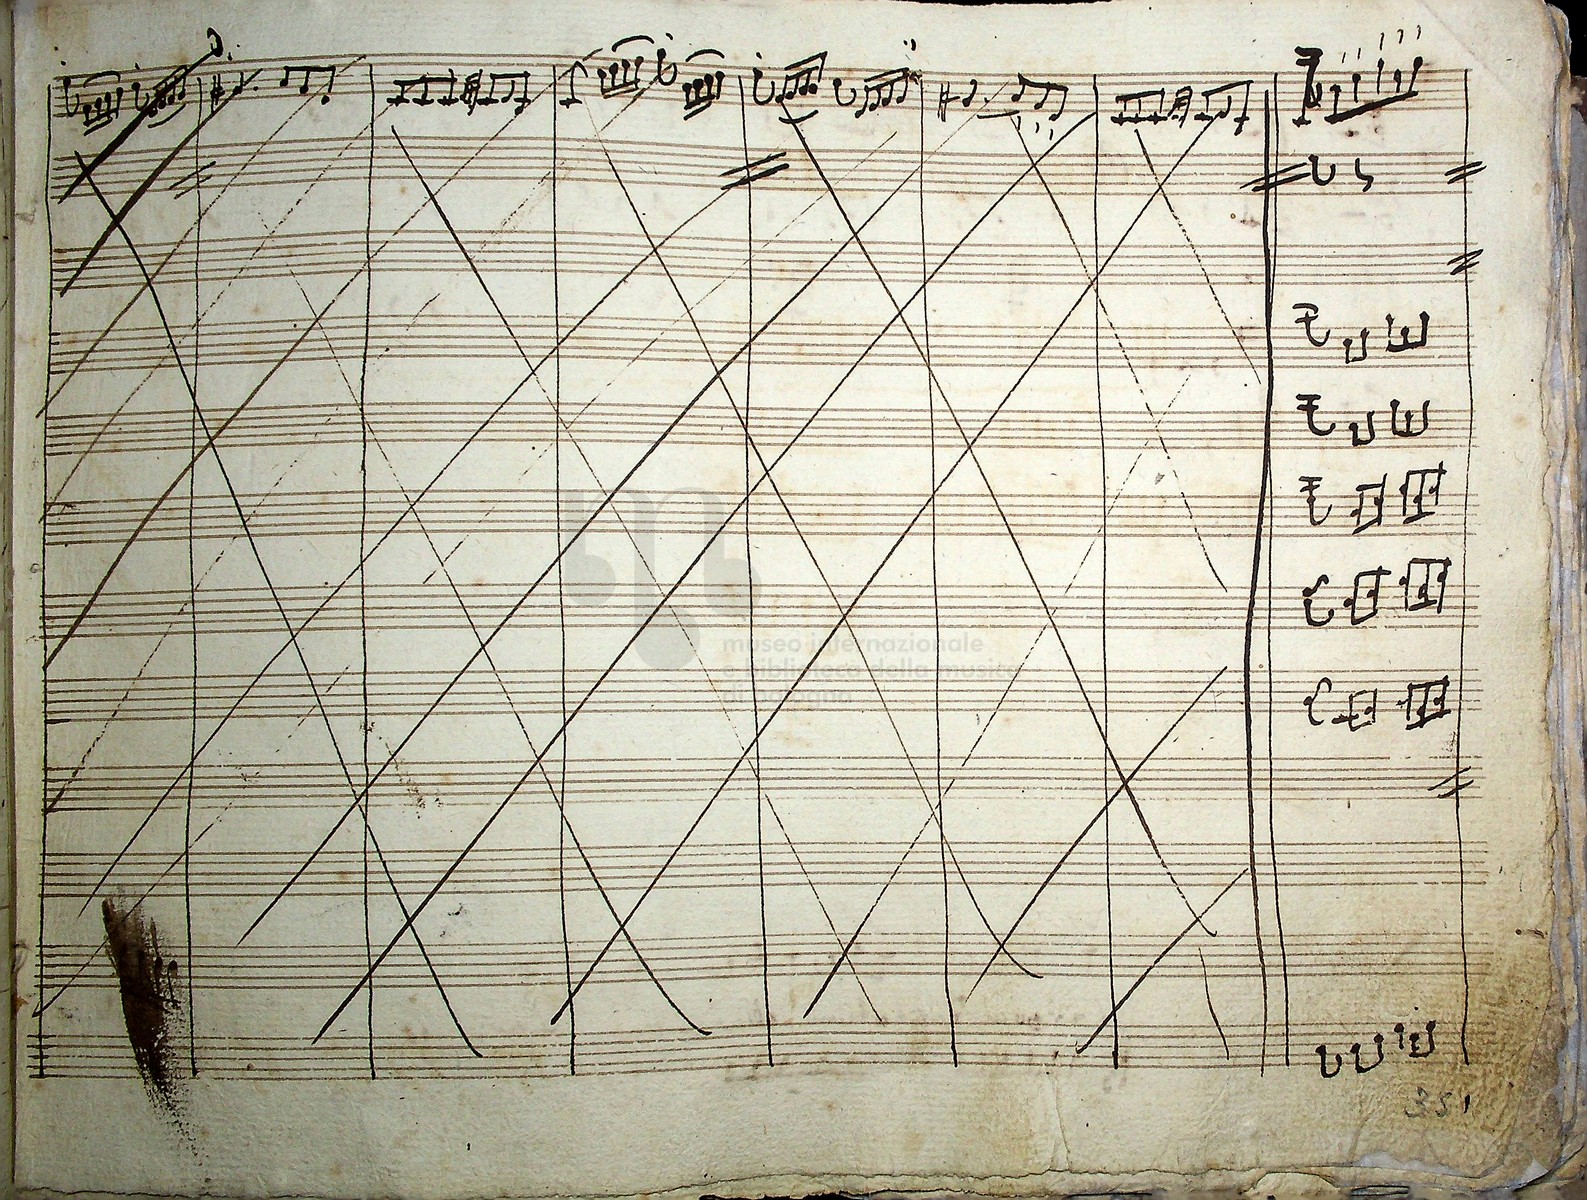 museo internazionale
e biblioteca della musica
di bologna
351